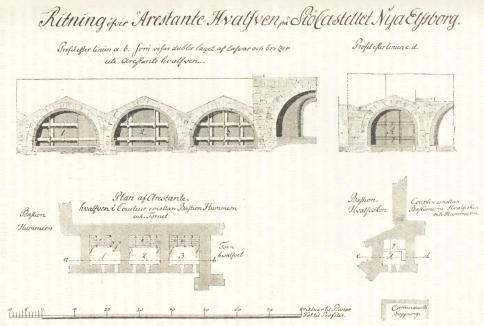 Ritning öfver Arestante Hvalfven, på SiöCastellet Nya Elfsborg.
Profil efter linien a. b. som visar dubla laget af lafvar och britzar
uti Arestante hvalfven.
Profil efter linien c. d.
1
2
3
Plan af Arestante-
hvalfven i Courtin emellan Bastion Hummern
och Tornet
Bastion
Hummern.
Torn
hvalfvet
a
1
2
3
b
Bastion
Hvalfisken
Courtin emellan
Bastionerne Hvalfisken
och Hummern
c
d
Alnar til Planer
Fot til Profiler.
Commendants
byggning.